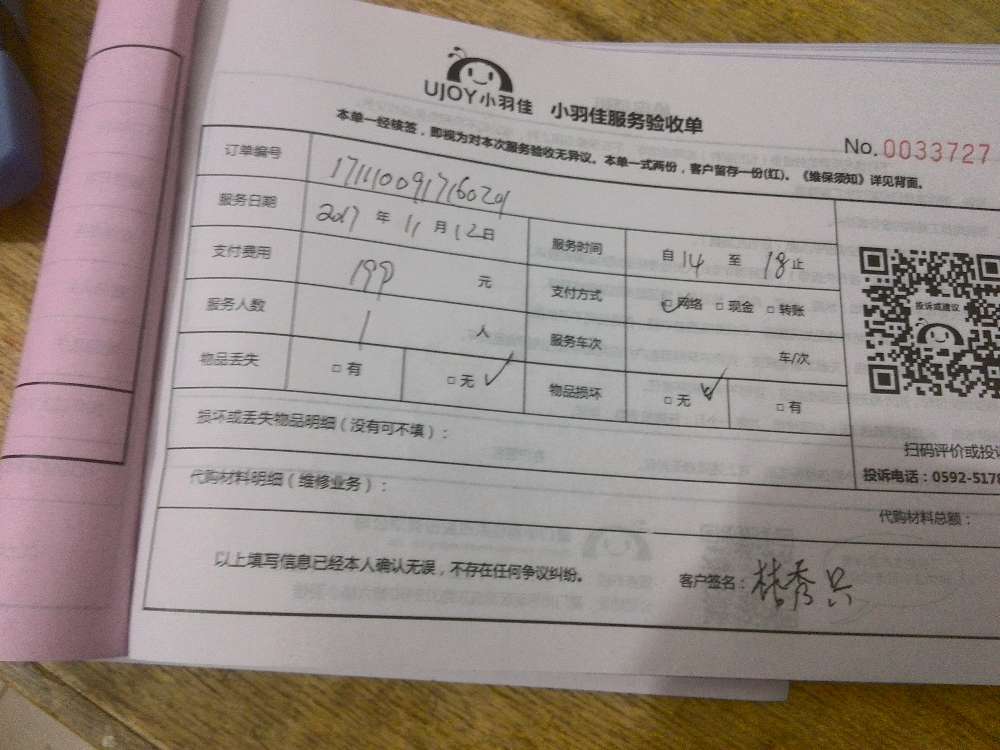 UJOY小羽佳 小羽佳服务验收单
No.0033727
本单一经核签，即视为对本次服务验收无异议。本单一式两份，客户留存一份(红)。《维保须知》详见背面。
订单编号
服务日期 2017 年 11 月 12 日 服务时间 自 14 至 18 止
支付费用 199 元 支付方式 网络 □ 现金 □ 转账
服务人数 1 人 服务车次 车/次
物品丢失 □ 有 □ 无 ✓ 物品损坏 □ 无 ✓ □ 有
投诉或建议
损坏或丢失物品明细（没有可不填）：
扫码评价或投
投诉电话：0592-5178
代购材料明细（维修业务）：
代购材料总额：
以上填写信息已经本人确认无误，不存在任何争议纠纷。 客户签名：林秀兵